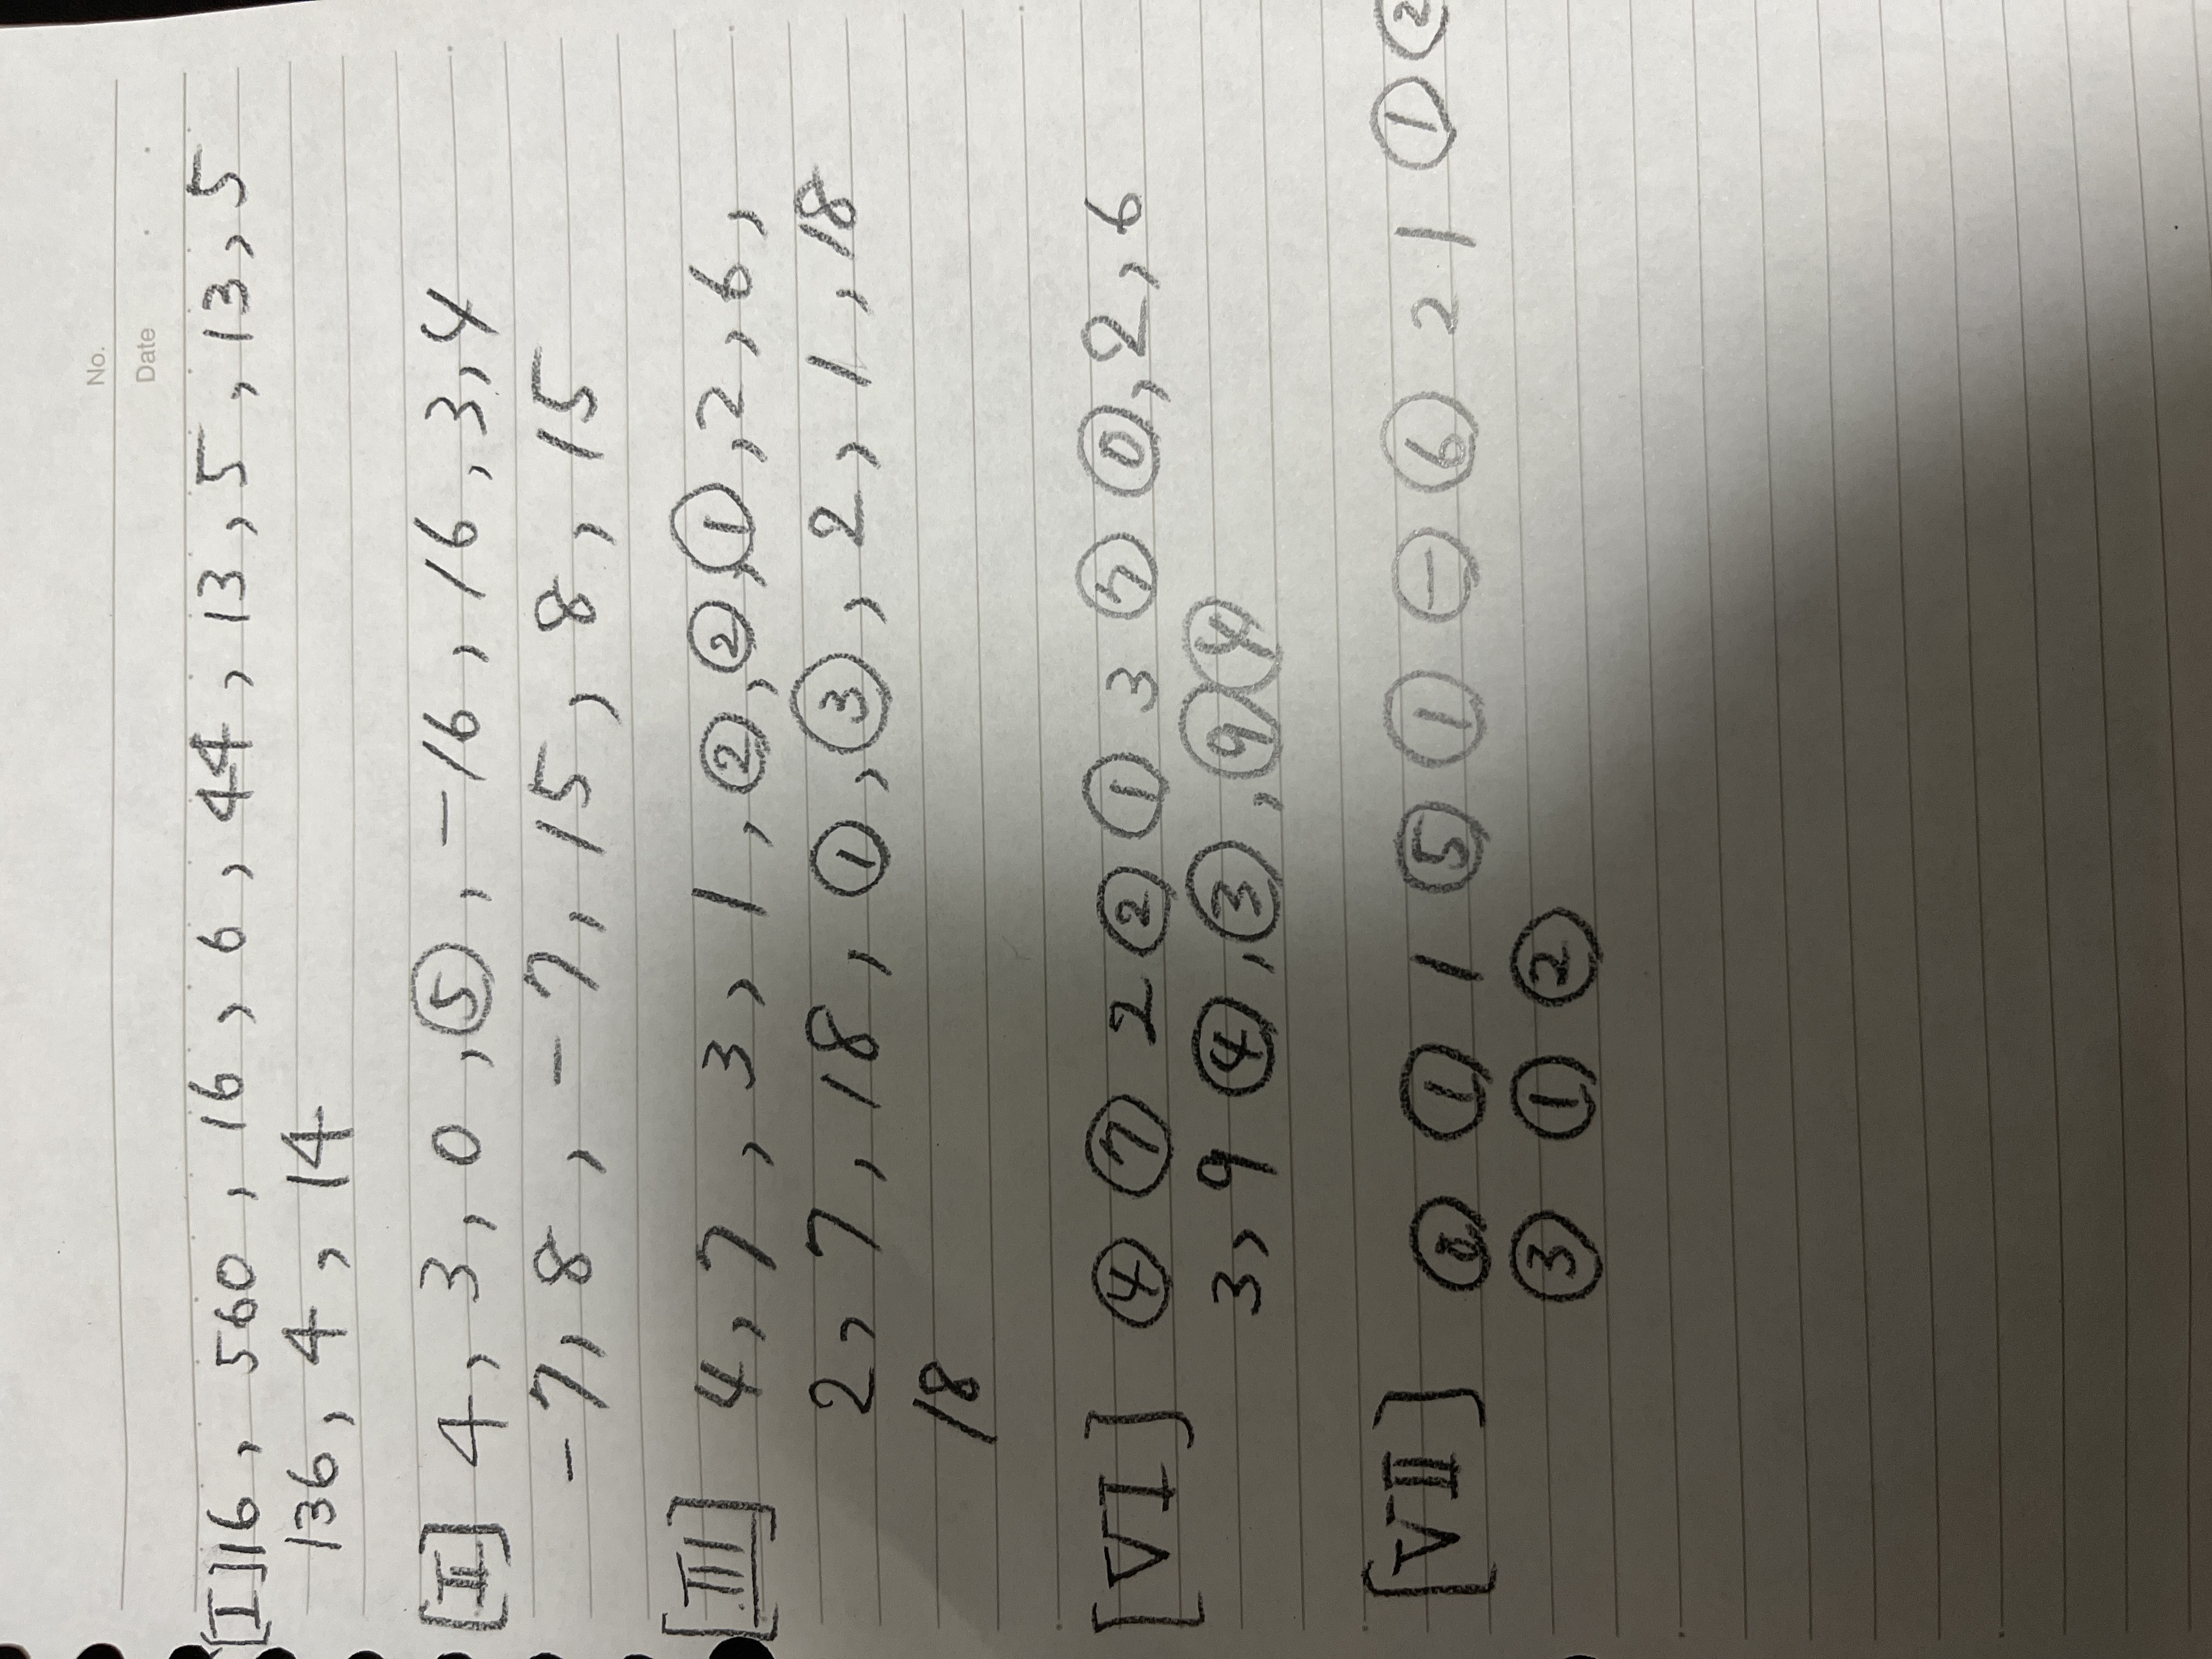 No.
Date
[I] 16, 560, 16, 6, 44, 13, 5, 13, 5
136, 4, 14
[II] 4, 3, 0, ⑤, -16, 16, 3, 4
-7, 8, -7, 15, 8, 15
[III] 4, 7, 3, 1, ②, ②, ①, 2, 6,
2, 7, 18, ①, ③, 2, 1, 18
18
[VI] ④ ⑦ 2 ② ① 3 ⑦ ⓪, 2, 6
3, 9 ④, ③, ⑨ ④
[VII] ① 1 ⑤ ① ⊖ ⑥ 2 1 ① ②
③ ① ②